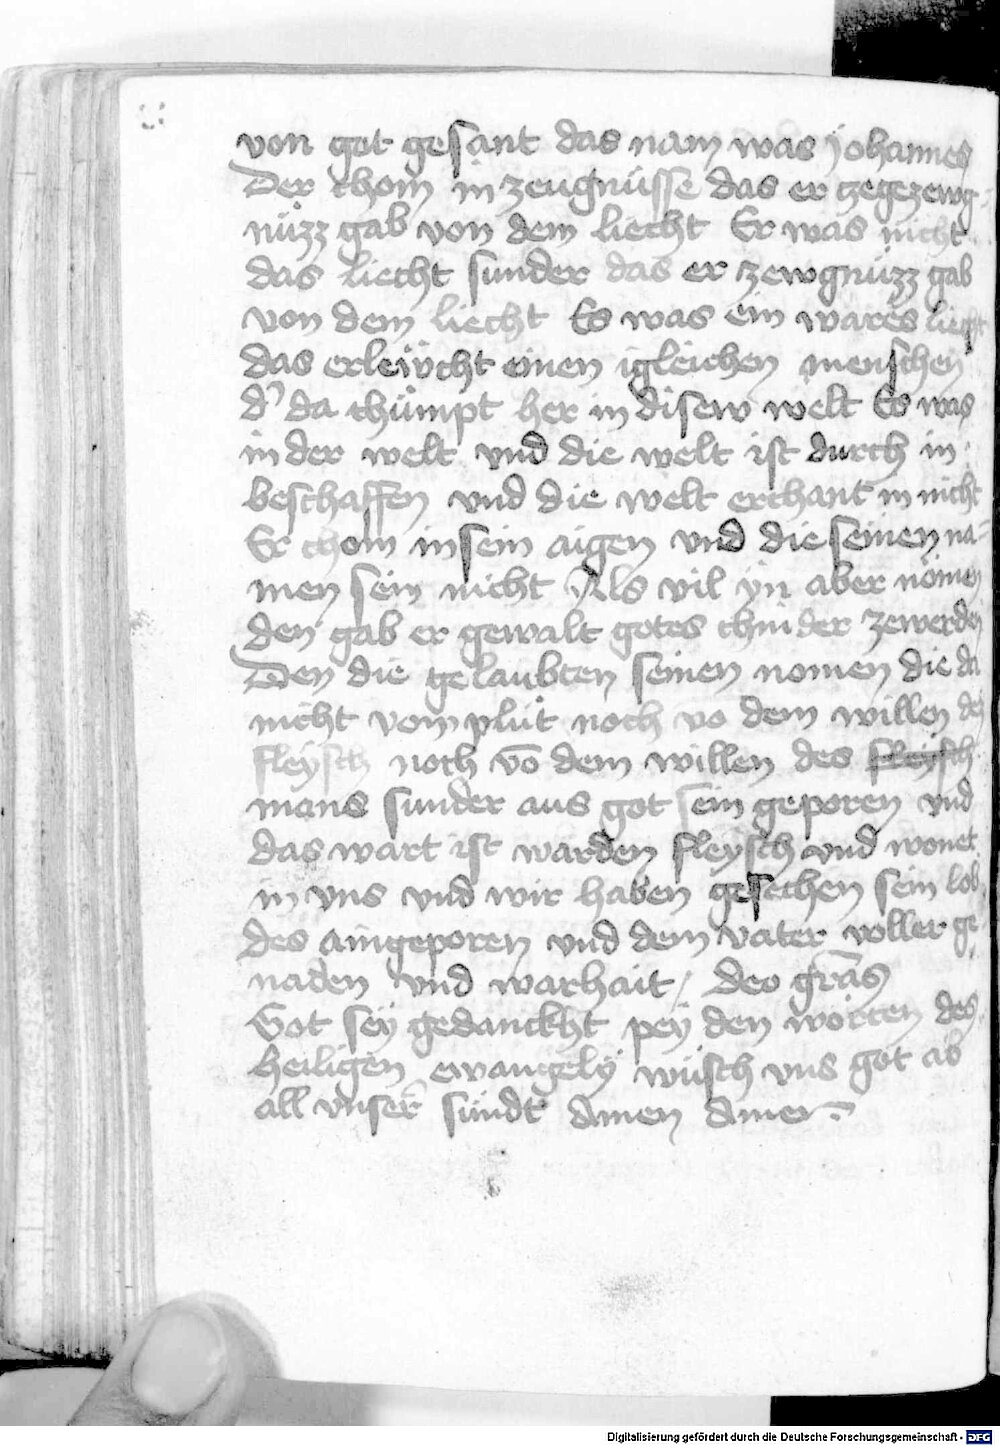 von got gesant das nam was johannes
Der chom in zeugnüsse das er zegezewg-
nüzz gab von dem liecht Er was nicht
das liecht sunder das er zewgnüzz gab
von dem liecht Es was ein wares liecht
das erleẅcht einen igleichen menschen
d' da chümpt her in disew welt Es was
in der welt vnd die welt ist durch in
beschaffen vnd die welt erchant in nicht
Er chom in sein aigen vnd die seinen na-
men sein nicht Als vil ÿn aber nömen
den gab er gewalt gotes chinder zewerden
Den die gelaubten seinen nomen die da
nicht vom plüt noch võ dem willen des
fleysch noch võ dem willen des fleysch
mans sunder aus got sein geporen vnd
das wart ist warden fleysch vnd wonet
in vns vnd wir haben gesechen sein lob
des aingeporen vnd dem vater voller ge-
naden vnd warhait / deo grãs
Got seÿ gedanckht peÿ den worten des
heiligen ewangelÿ wüsch vns got ab
all vnser sündt amen amen
Digitalisierung gefördert durch die Deutsche Forschungsgemeinschaft - DFG